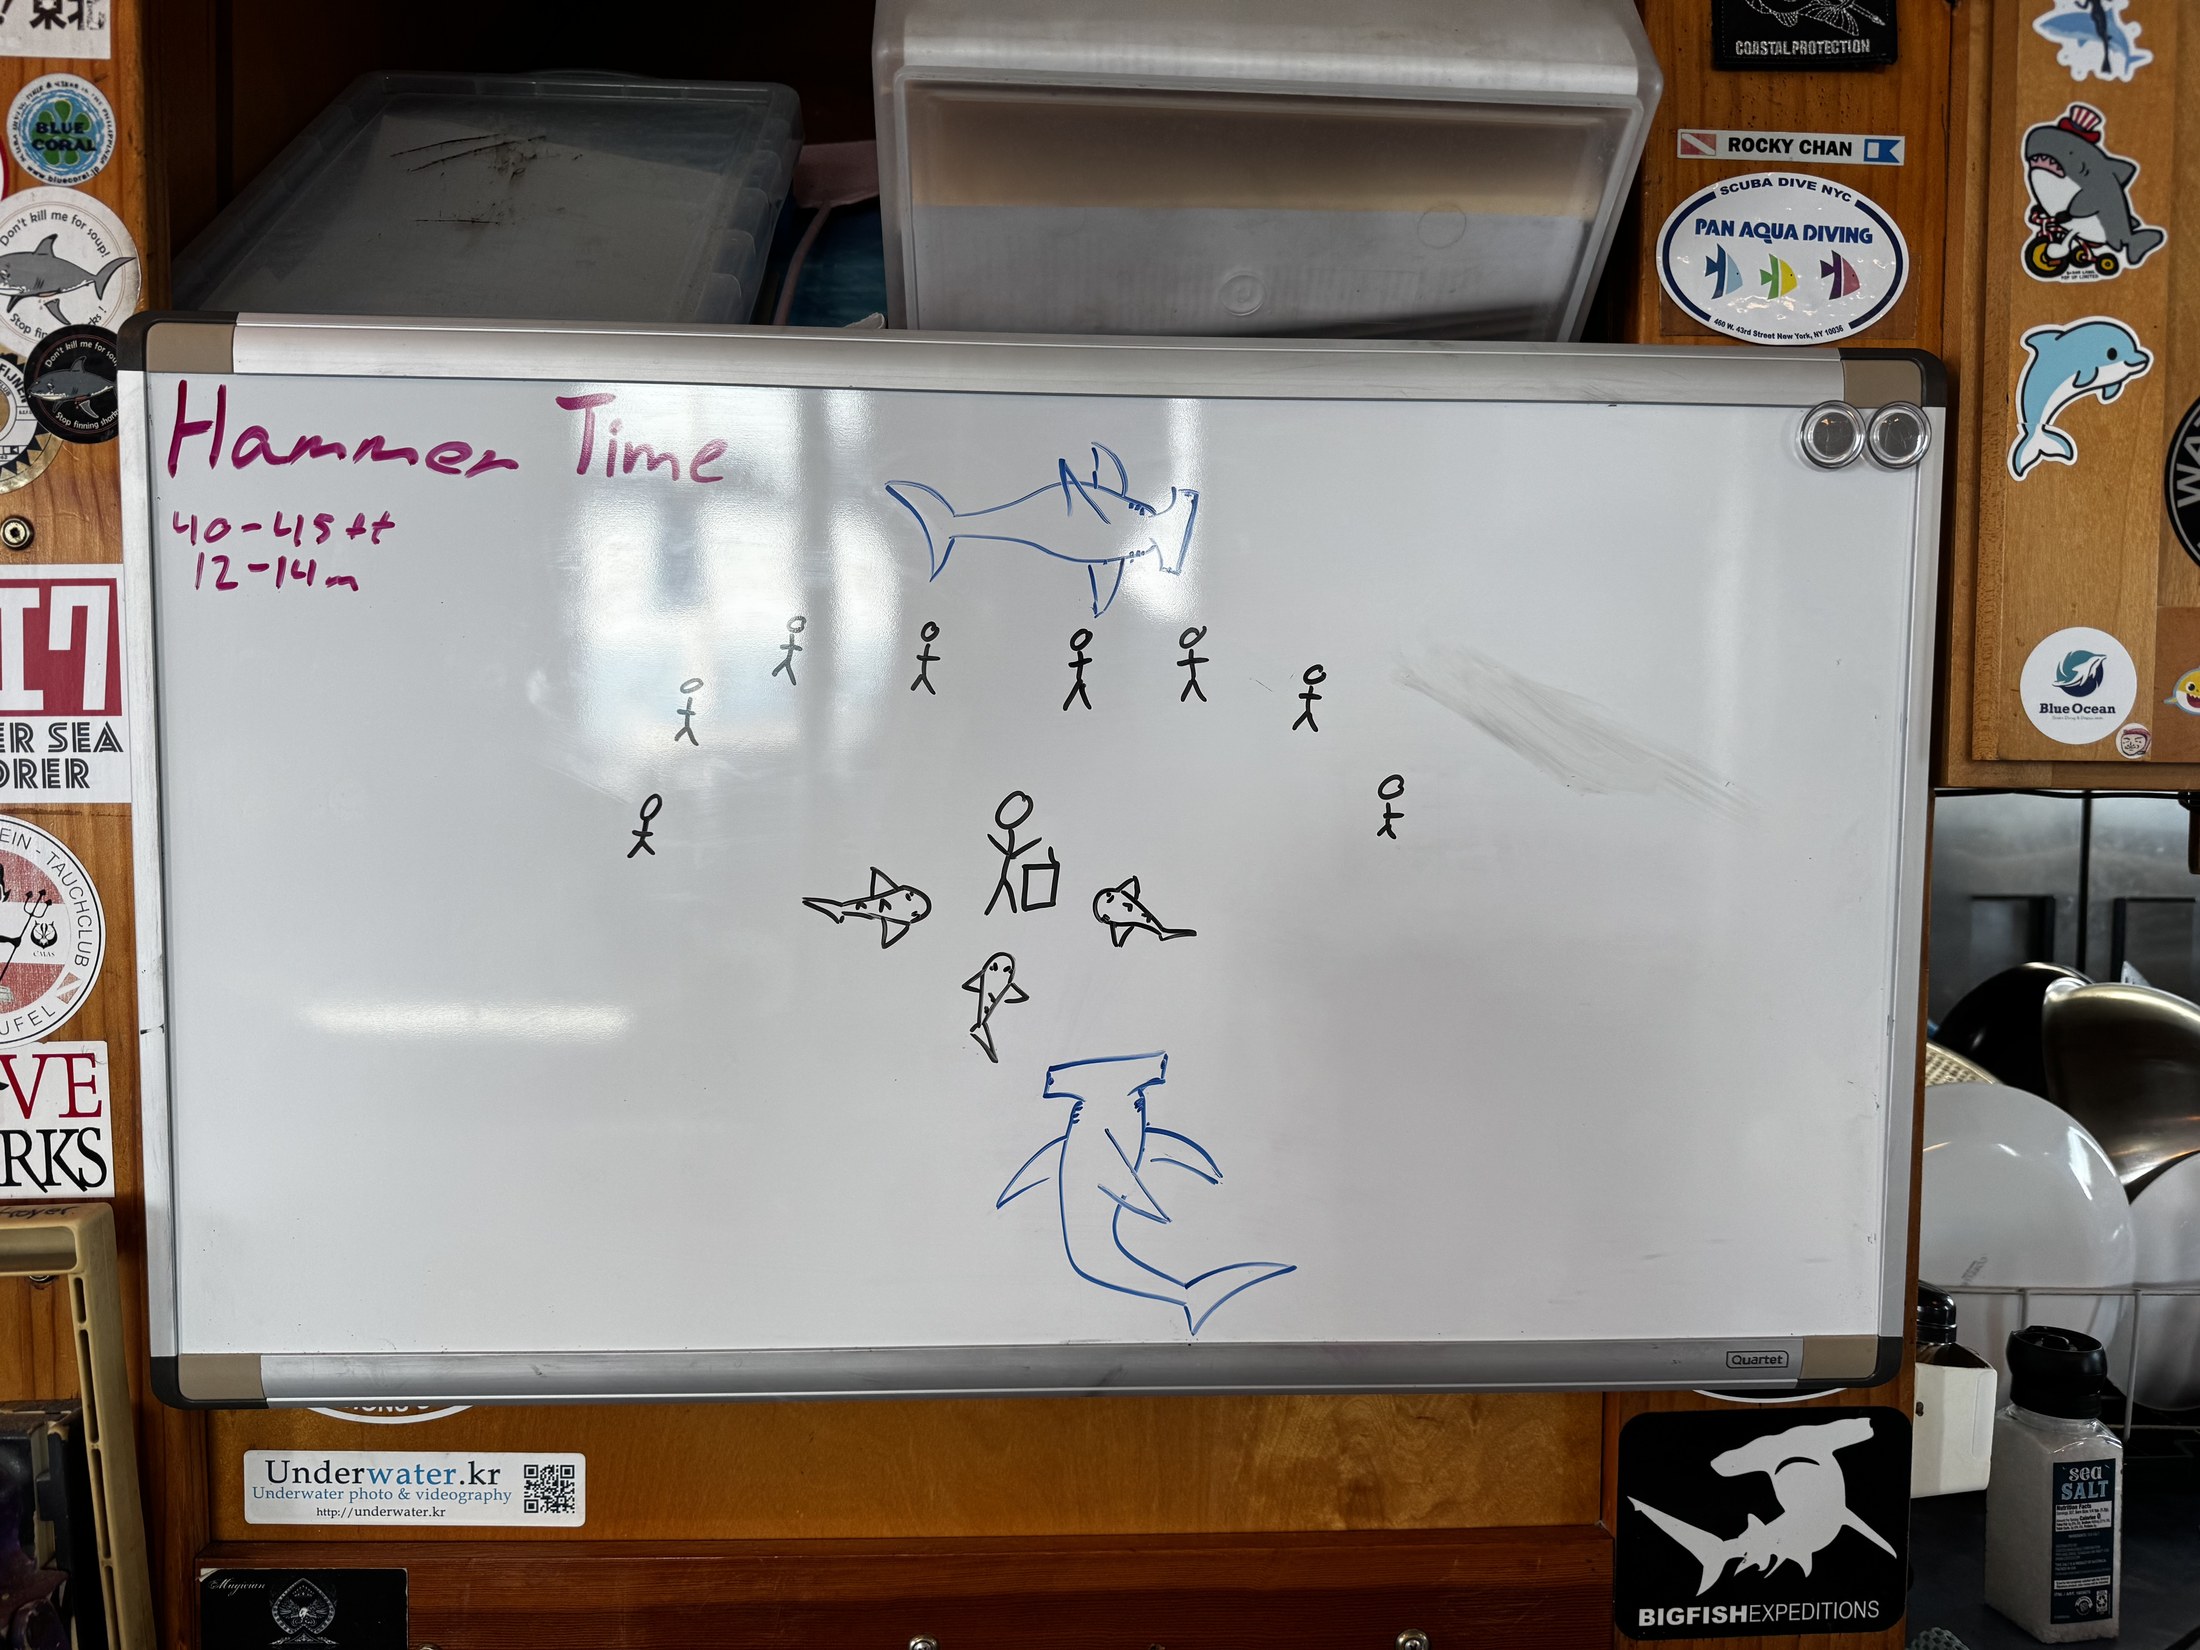 東北
COASTAL PROTECTION
BLUE
CORAL
www.bluecoral.jp
ROCKY CHAN
SCUBA DIVE NYC
PAN AQUA DIVING
460 W. 43rd Street New York, NY 10036
Don't kill me for soup!
Don't kill me for
Stop finning sharks
Hammer Time
40-45 ft
12-14 m
Blue Ocean
SEA
TAUCHCLUB
CMAS
Quartet
Underwater.kr
Underwater photo & videography
http://underwater.kr
Magician
sea
SALT
Nutrition Facts
BIGFISHEXPEDITIONS